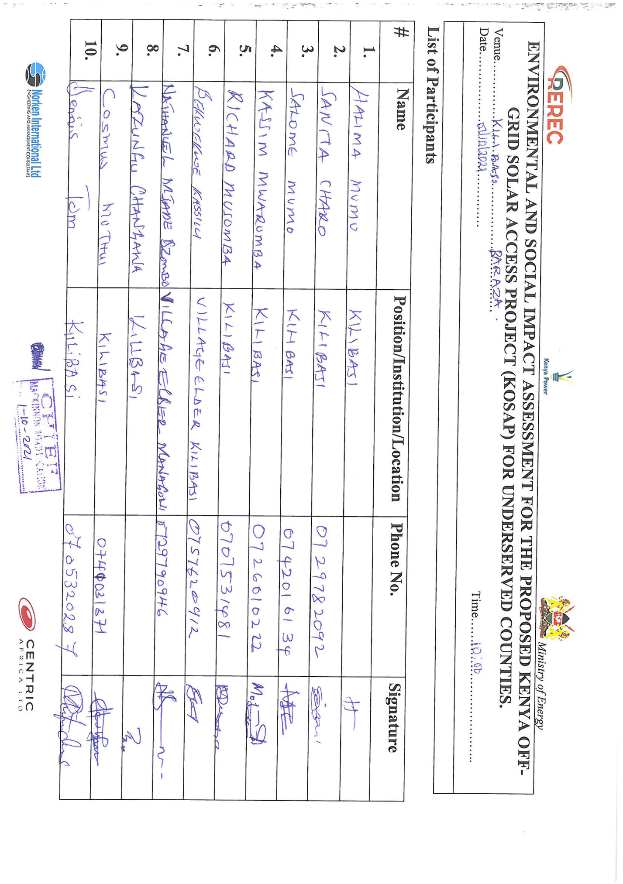 REREC
Kenya Power
Ministry of Energy
ENVIRONMENTAL AND SOCIAL IMPACT ASSESSMENT FOR THE PROPOSED KENYA OFF-
GRID SOLAR ACCESS PROJECT (KOSAP) FOR UNDERSERVED COUNTIES.
Venue.....KILIBASI.....BARAZA
Date.....01/10/2021..... Time.....10:00.....
List of Participants
# Name Position/Institution/Location Phone No. Signature
1. HALIMA MUMO KILIBASI
2. SANITA CHARO KILIBASI 0729782092
3. SALOME MUMO KILIBASI 0742016134
4. KASSIM MWARUMBA KILIBASI 0726010222
5. RICHARD MUSOMBA KILIBASI 0707531481
6. KASSILU VILLAGE ELDER KILIBASI 0757620912
7. NATHANIEL DZOMBO VILLAGE ELDER 0729790946
8. CHANZAWA KILIBASI
9. COSMUS MUTHUI KILIBASI 0740031371
10. Tom KILIBASI 0705320287
Norken International Ltd
CHIEF
1-10-2021
CENTRIC
AFRICA LTD